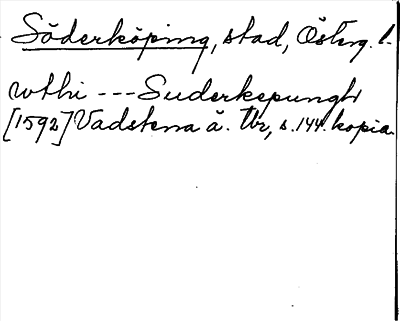 Söderköping, stad, Österg. l.
wthi --- Suderkepungh
[1592] Vadstena ä. Tbr, s. 144. kopia